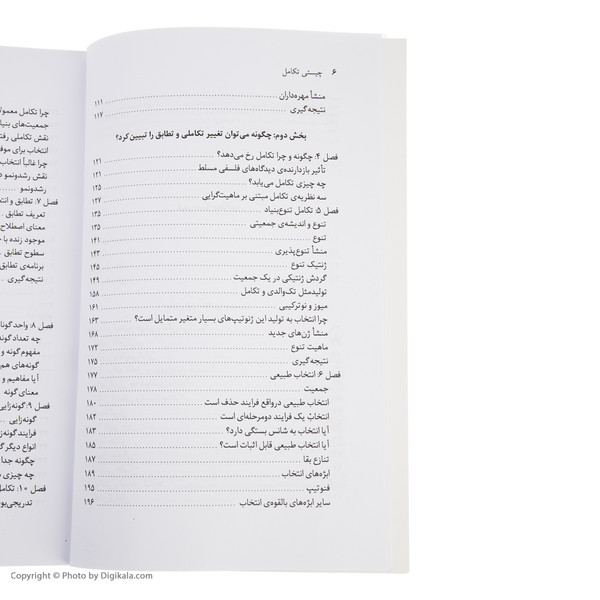 ۶ چیستی تکامل
منشأ مهره‌داران ۱۱۱
نتیجه‌گیری ۱۱۷
بخش دوم: چگونه می‌توان تغییر تکاملی و تطابق را تبیین کرد؟
فصل ۴: چگونه و چرا تکامل رخ می‌دهد؟ ۱۲۱
تأثیر بازدارنده‌ی دیدگاه‌های فلسفی مسلط ۱۲۱
چه چیزی تکامل می‌یابد؟ ۱۲۵
سه نظریه‌ی تکامل مبتنی بر ماهیت‌گرایی ۱۲۷
فصل ۵: تکامل تنوع‌بنیاد ۱۳۵
تنوع و اندیشه‌ی جمعیتی ۱۳۵
تنوع ۱۴۱
منشأ تنوع‌پذیری ۱۴۳
ژنتیک تنوع ۱۴۵
گردش ژنتیکی در یک جمعیت ۱۴۹
تولیدمثل تک‌والدی و تکامل ۱۵۸
میوز و نوترکیبی ۱۶۱
چرا انتخاب به تولید این ژنوتیپ‌های بسیار متغیر متمایل است؟ ۱۶۳
منشأ ژن‌های جدید ۱۶۸
ماهیت تنوع ۱۷۲
نتیجه‌گیری ۱۷۵
فصل ۶: انتخاب طبیعی ۱۷۷
جمعیت ۱۷۸
انتخاب طبیعی درواقع فرایند حذف است ۱۸۰
انتخاب یک فرایند دومرحله‌ای است ۱۸۲
آیا انتخاب به شانس بستگی دارد؟ ۱۸۳
آیا انتخاب طبیعی قابل اثبات است؟ ۱۸۵
تنازع بقا ۱۸۷
ابژه‌های انتخاب ۱۸۹
فنوتیپ ۱۹۵
سایر ابژه‌های بالقوه‌ی انتخاب ۱۹۶
چرا تکامل معمولا
جمعیت‌های بنیا
نقش تکاملی رفتا
انتخاب برای موفق
چرا غالباً انتخاب
نقش رشدونمو د
رشدونمو
فصل ۷: تطابق و انت
تعریف تطابق
معنای اصطلاح
موجود زنده با
سطوح تطابق
برنامه‌ی تطابق
نتیجه‌گیری
فصل ۸: واحد گونا
چه تعداد گونه
مفهوم گونه و
گونه‌های هم
آیا مفاهیم و
معنای گونه
فصل ۹: گونه‌زایی
گونه‌زایی
فرایند گونه‌ز
انواع دیگر گ
چگونه جدا
چه چیزی
فصل ۱۰: تکامل
تدریجی‌بو
Copyright © Photo by Digikala.com